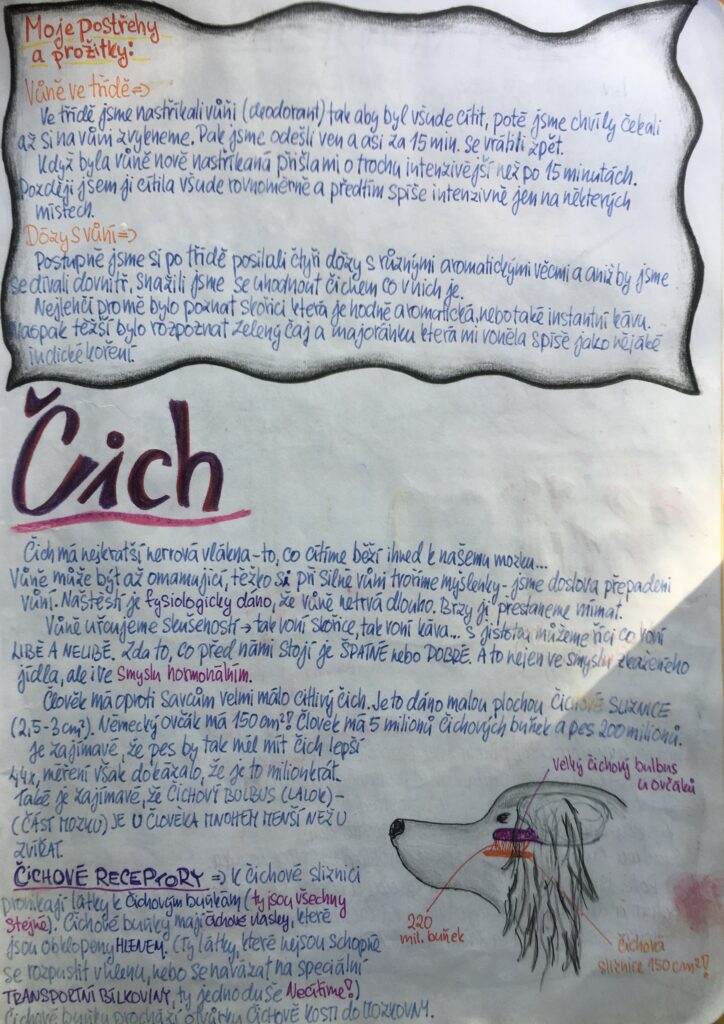 Moje postřehy
a prožitky:
Vůně ve třídě =>
Ve třídě jsme nastříkali vůňi (deodorant) tak aby byl všude cítit, poté jsme chvíly čekali
až si na vůni zvykneme. Pak jsme odešli ven a asi za 15 min. se vrátili zpět.
Když byla vůně nově nastříkaná přišla mi o trochu intenzivější než po 15 minutách.
Později jsem ji cítila všude rovnoměrně a předtím spíše intenzivně jen na některých
místech.
Dózy s vůní =>
Postupně jsme si po třídě posílali čtyři dózy s různými aromatickými věcmi a aniž by jsme
se dívali dovnitř, snažili jsme se uhodnout čichem co v nich je.
Nejlehčí pro mě bylo poznat skořici která je hodně aromatická, nebo také instantní kávu.
Naopak težší bylo rozpoznat zelený čaj a majoránku která mi voněla spíše jako nějaké
indické koření.
Čich
Čich má nejkratší nervová vlákna - to, co cítíme běží ihned k našemu mozku...
Vůně může být až omamující, těžko si při silné vůni tvoříme myšlenky - jsme doslova přepadeni
vůní. Naštěstí je fysiologicky dáno, že vůně netrvá dlouho. Brzy ji přestaneme vnímat.
Vůně určujeme zkušeností → tak voní skořice, tak voní káva... S jistotou můžeme říci co voní
LIBĚ A NELIBĚ. Zda to, co před námi stojí je ŠPATNÉ nebo DOBRÉ. A to nejen ve smyslu zkaženého
jídla, ale i ve smyslu hormonálním.
Člověk má oproti savcům velmi málo citlivý čich. Je to dáno malou plochou ČICHOVÉ SLIZNICE
(2,5-3 cm²). Německý ovčák má 150 cm²! Člověk má 5 milionů čichových buněk a pes 200 milionů.
Je zajímavé, že pes by tak měl mít čich lepší
44x, měření však dokázalo, že je to milionkrát.
Také je zajímavé, že ČICHOVÝ BULBUS (LALOK) -
(ČÁST MOZKU) JE U ČLOVĚKA MNOHEM MENŠÍ NEŽ U
ZVÍŘAT.
velký čichový bulbus
u ovčáků
220
mil. buněk
čichová
sliznice 150 cm²!
ČICHOVÉ RECEPTORY => K čichové sliznici
pronikají látky k čichovým buňkám (ty jsou všechny
stejné). Čichové buňky mají čichové vlásky, které
jsou obklopeny HLENEM. (Ty látky, které nejsou schopné
se rozpustit v hlenu, nebo se navázat na speciální
TRANSPORTNÍ BÍLKOVINY, ty jednoduše necítíme!)
Čichové buňky prochází otvůrky ČICHOVÉ KOSTI do MOZKOVNY.